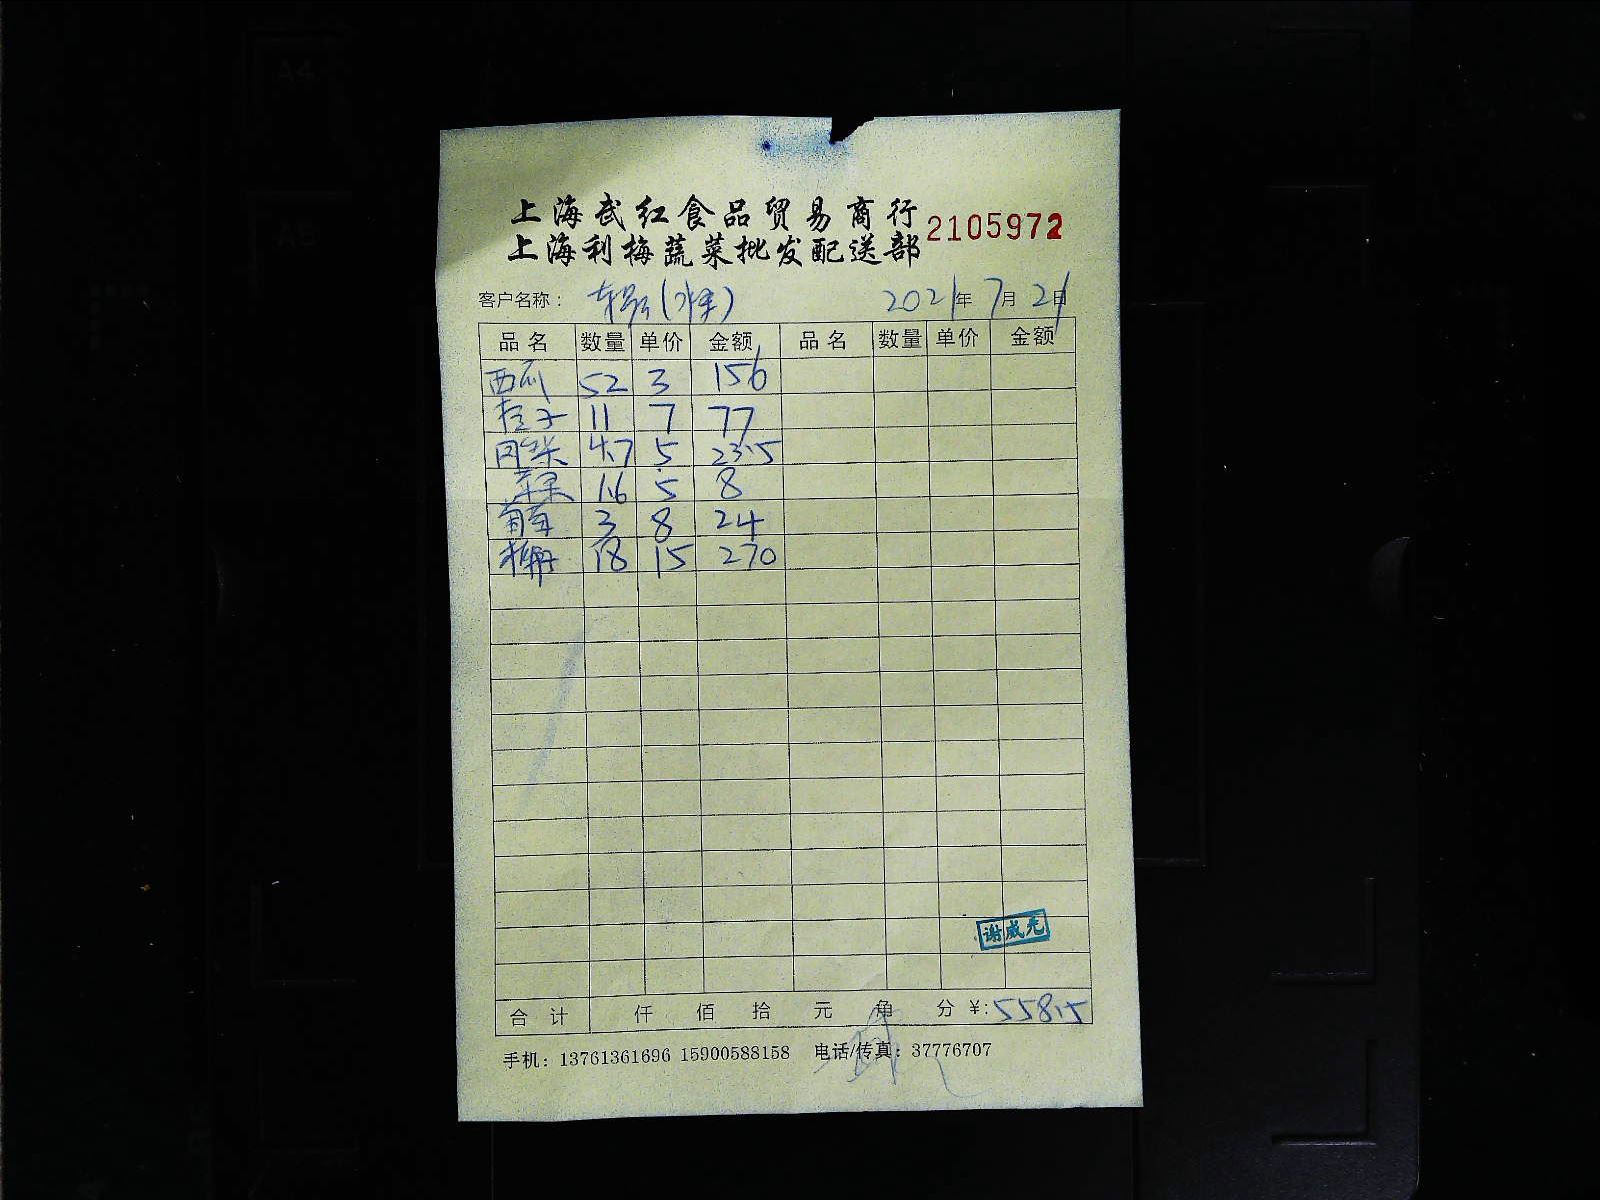 上海武红食品贸易商行
上海利梅蔬菜批发配送部 2105972
客户名称： 2021年7月21日
品名 数量 单价 金额 品名 数量 单价 金额
西瓜 52 3 156
桔子 11 7 77
4.7 5 23.5
苹果 1.6 5 8
葡萄 3 8 24
18 15 270
谢威光
合计 仟 佰 拾 元 角 分 ¥: 558.5
手机：13761361696 15900588158 电话/传真：37776707